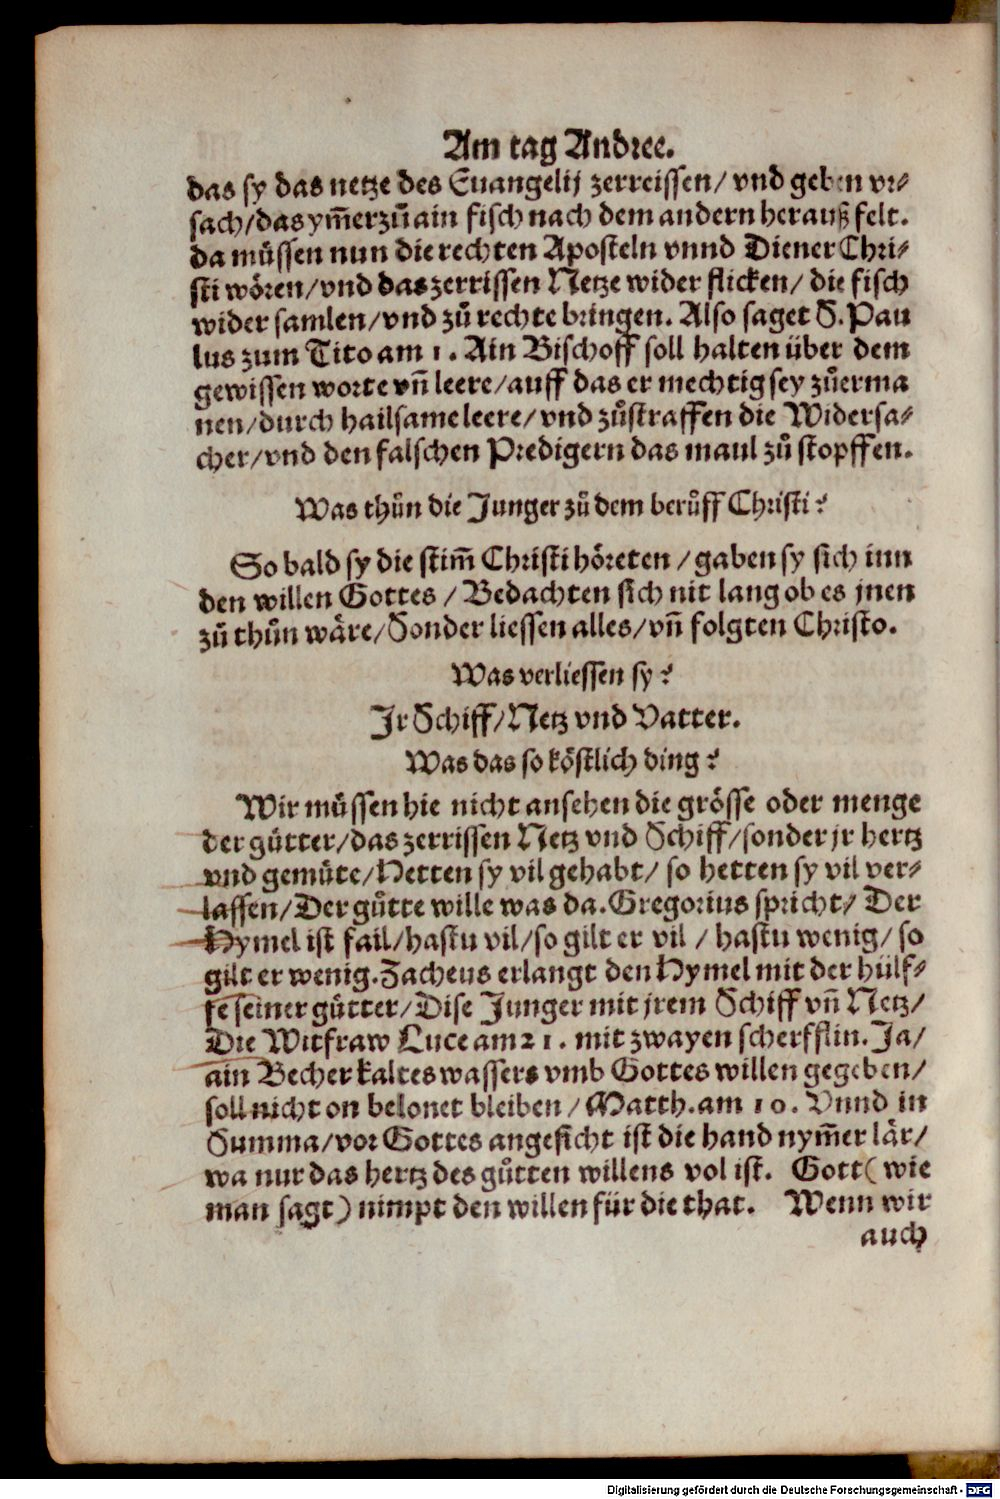 Am tag Andree.
das sy das netze des Euangelij zerreissen/ vnd geben vr⸗
sach/das ym̃erzů ain fisch nach dem andern herauß felt.
da müssen nun die rechten Aposteln vnnd Diener Chri⸗
sti wören/vnd das zerrissen Netze wider flicken/ die fisch
wider samlen/vnd zů rechte bringen. Also saget S. Pau
lus zum Tito am 1. Ain Bischoff soll halten über dem
gewissen worte vñ leere/auff das er mechtig sey zůerma
nen/durch hailsame leere/ vnd zůstraffen die Widersa⸗
cher/vnd den falschen Predigern das maul zů stopffen.
Was thůn die Junger zů dem berůff Christi?
So bald sy die stim̃ Christi höreten /gaben sy sich inn
den willen Gottes / Bedachten sich nit lang ob es jnen
zů thůn wäre/Sonder liessen alles/vñ folgten Christo.
Was verliessen sy?
Jr Schiff/Netz vnd Vatter.
Was das so köstlich ding?
Wir müssen hie nicht ansehen die grösse oder menge
der gütter/das zerrissen Netz vnd Schiff/sonder jr hertz
vnd gemüte/Hetten sy vil gehabt/ so hetten sy vil ver⸗
lassen/Der gůtte wille was da.Gregorius spricht/ Der
Hymel ist fail/hastu vil/so gilt er vil / hastu wenig/ so
gilt er wenig.Zacheus erlangt den Hymel mit der hülf⸗
fe seiner gütter/Dise Junger mit jrem Schiff vñ Netz/
Die Witfraw Luce am 21. mit zwayen scherfflin. Ja/
ain Becher kaltes wassers vmb Gottes willen gegeben/
soll nicht on belonet bleiben /Matth.am 10. Vnnd in
Summa/vor Gottes angesicht ist die hand nym̃er lär/
wa nur das hertz des gůtten willens vol ist. Gott( wie
man sagt) nimpt den willen für die that. Wenn wir
auch
Digitalisierung gefördert durch die Deutsche Forschungsgemeinschaft - DFG